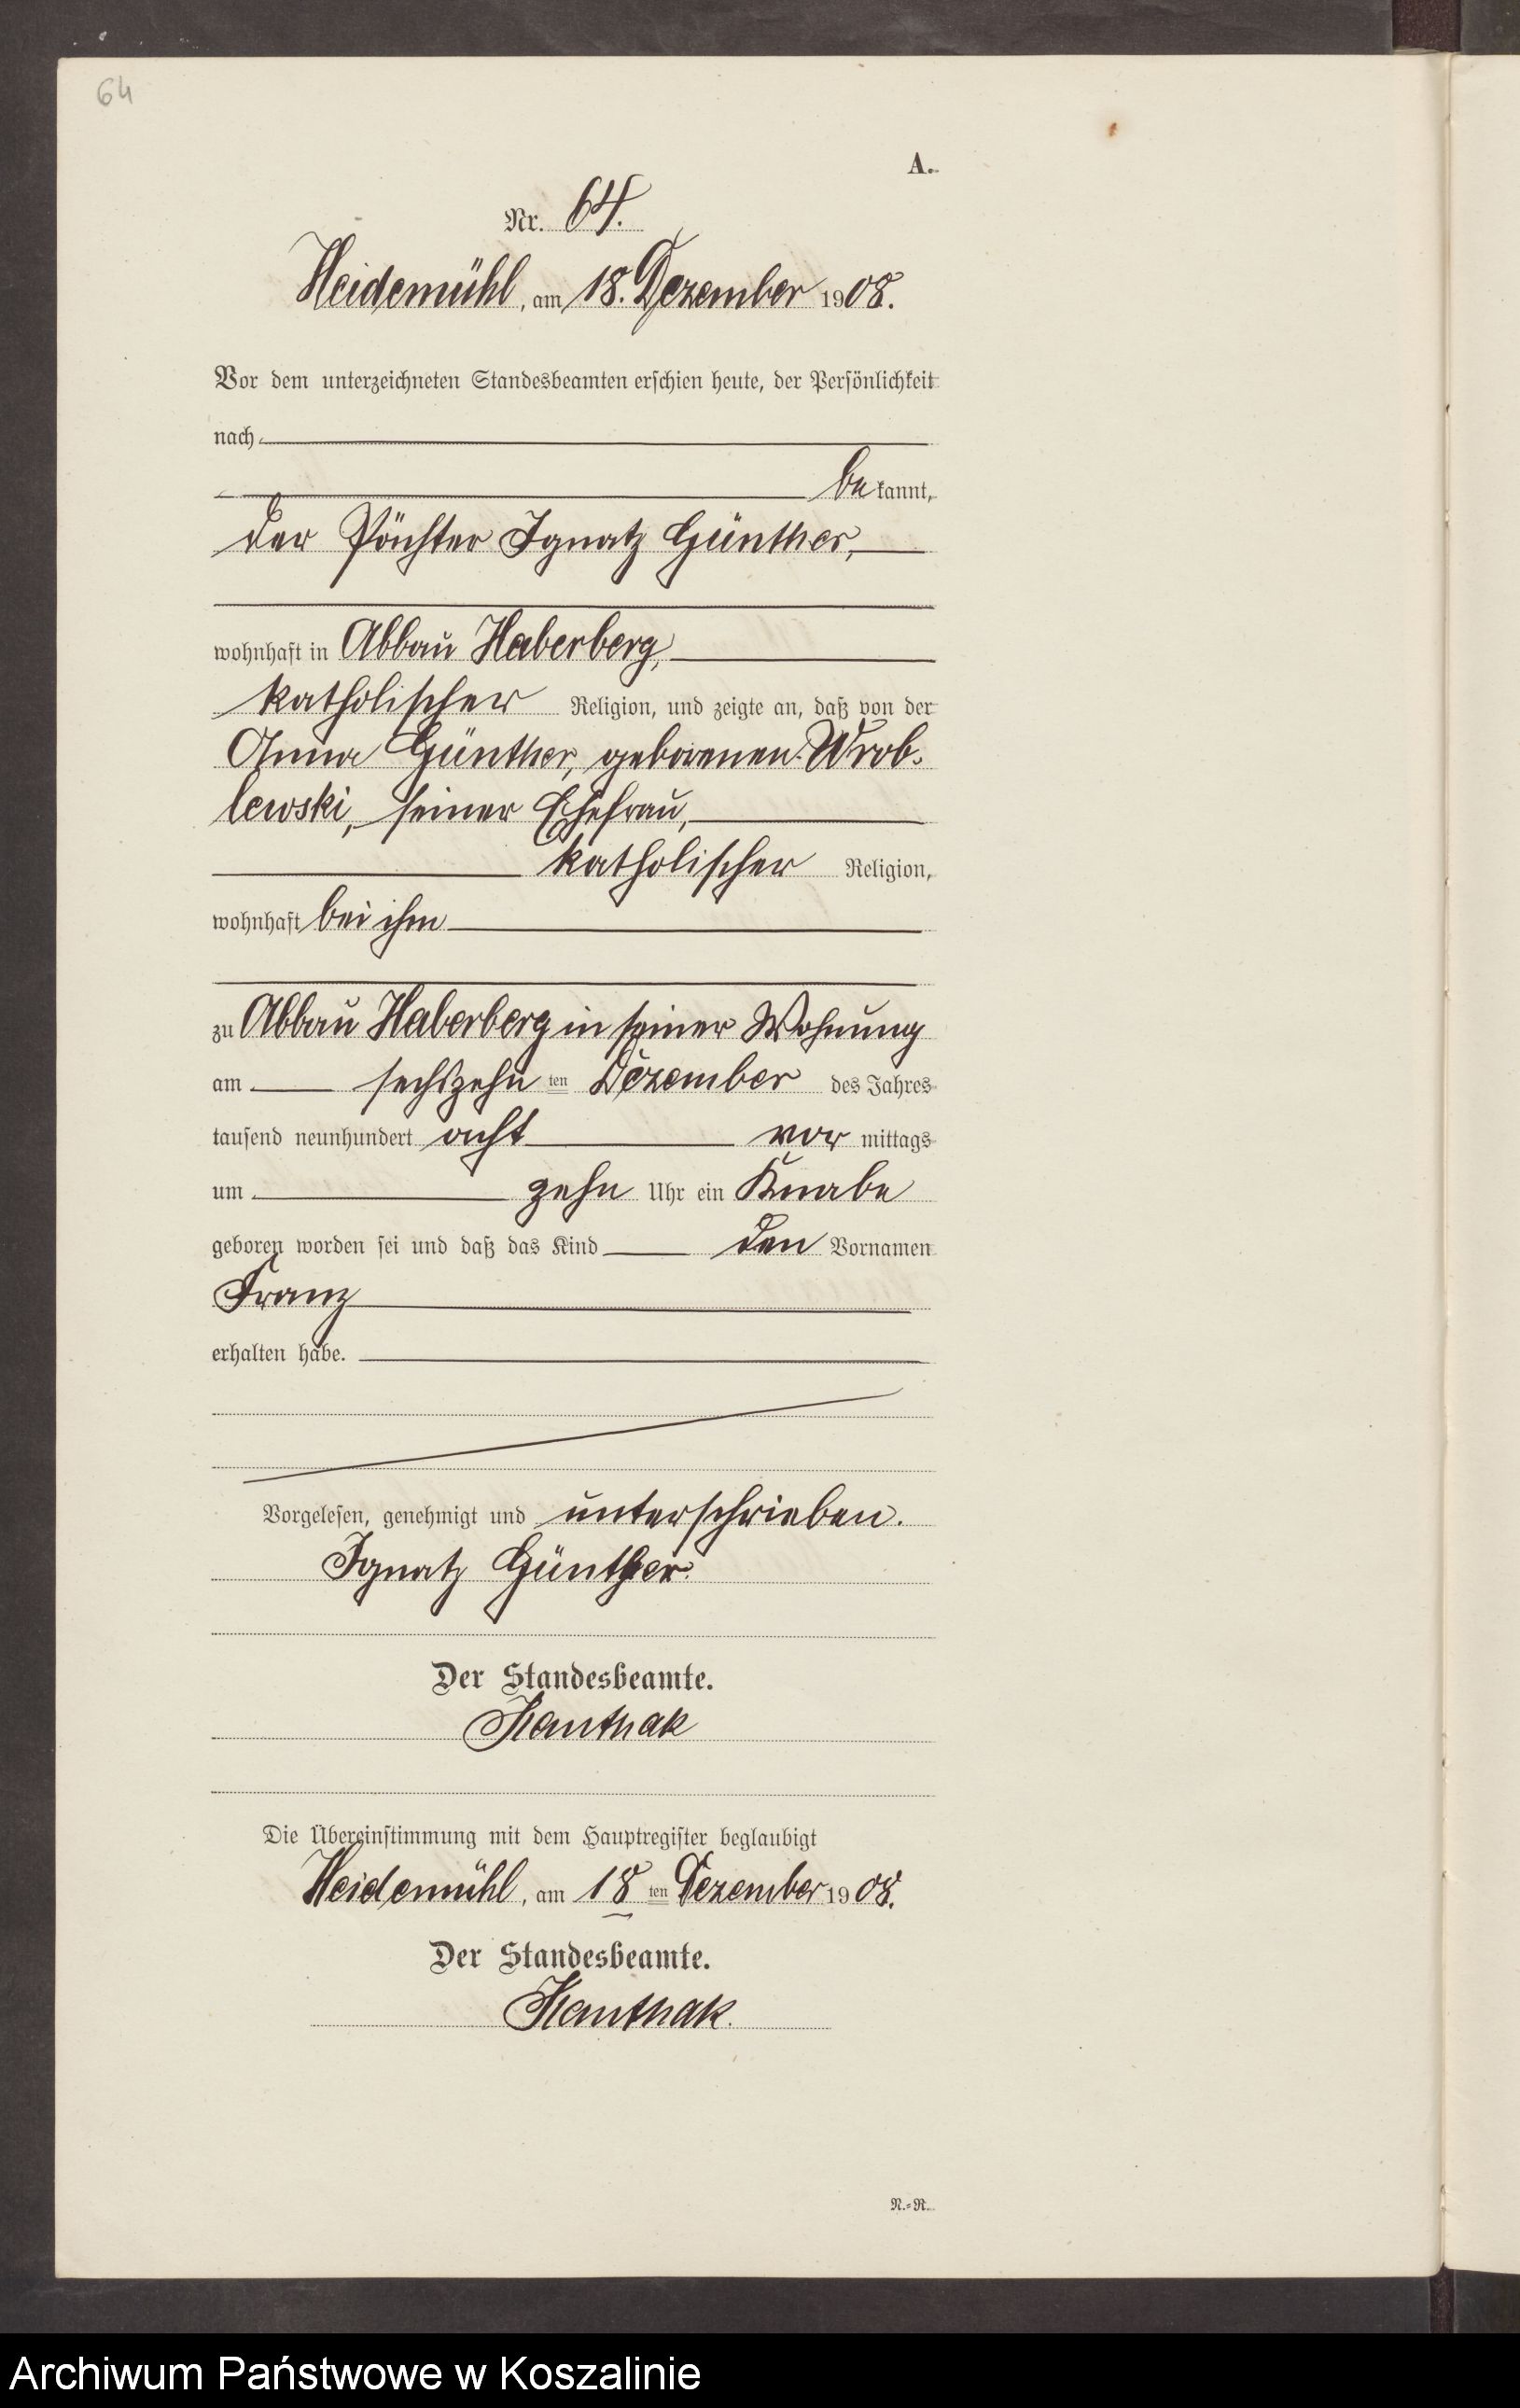 64
A.
Nr. 64.
Heidemühl, am 18. Dezember 1908.
Vor dem unterzeichneten Standesbeamten erschien heute, der Persönlichkeit
nach
bekannt,
der Pächter Ignatz Günther,
wohnhaft in Abbau Haberberg,
katholischer Religion, und zeigte an, daß von der
Anna Günther, geborenen Wrob-
lewski, seiner Ehefrau,
katholischer Religion,
wohnhaft bei ihm
zu Abbau Haberberg in seiner Wohnung
am sechszehn ten Dezember des Jahres
tausend neunhundert acht vor mittags
um zehn Uhr ein Knabe
geboren worden sei und daß das Kind den Vornamen
Franz
erhalten habe.
Vorgelesen, genehmigt und unterschrieben.
Ignatz Günther.
Der Standesbeamte.
Kanthak
Die Übereinstimmung mit dem Hauptregister beglaubigt
Heidemühl, am 18 ten Dezember 1908.
Der Standesbeamte.
Kanthak.
N.=R.
Archiwum Państwowe w Koszalinie